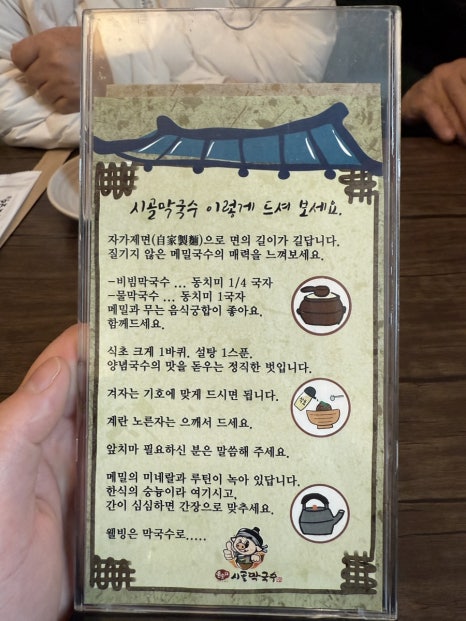 시골막국수 이렇게 드셔 보세요.
자가제면(自家製麵)으로 면의 길이가 길답니다.
질기지 않은 메밀국수의 매력을 느껴보세요.
-비빔막국수 ... 동치미 1/4 국자
-물막국수 ... 동치미 1국자
메밀과 무는 음식궁합이 좋아요.
함께드세요.
식초 크게 1바퀴. 설탕 1스푼.
양념국수의 맛을 돋우는 정직한 벗입니다.
겨자는 기호에 맞게 드시면 됩니다.
계란 노른자는 으깨서 드세요.
앞치마 필요하신 분은 말씀해 주세요.
메밀의 미네랄과 루틴이 녹아 있답니다.
한식의 숭늉이라 여기시고,
간이 심심하면 간장으로 맞추세요.
웰빙은 막국수로.....
시골막국수